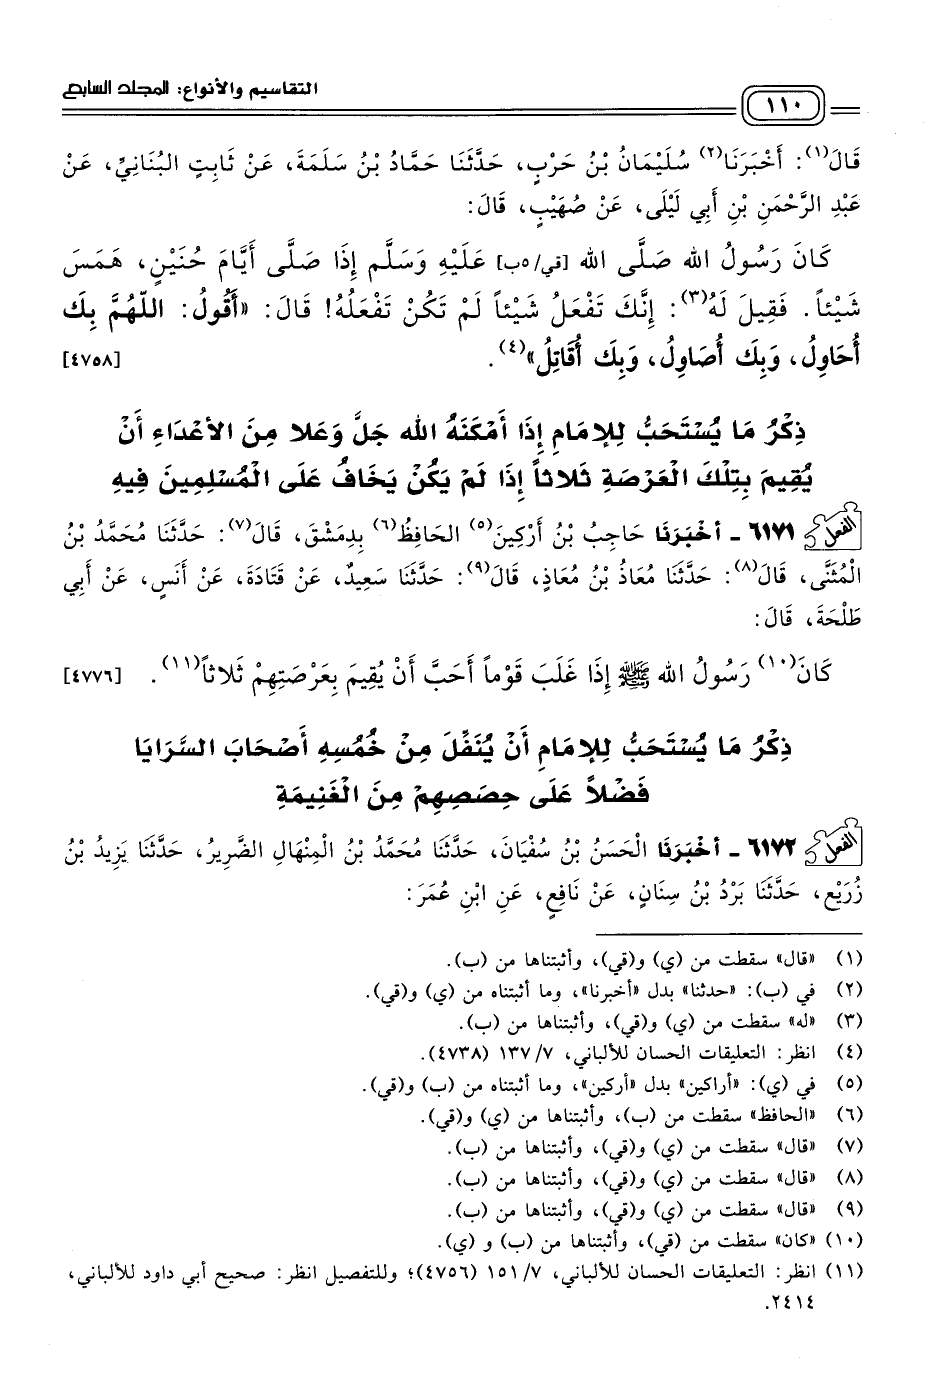 التقاسيم والأنواع: المجلد السابع
١١٠
قَالَ(١): أَخْبَرَنَا(٢) سُلَيْمَانُ بْنُ حَرْبٍ، حَدَّثَنَا حَمَّادُ بْنُ سَلَمَةَ، عَنْ ثَابِتٍ البُنَانِيِّ، عَنْ
عَبْدِ الرَّحْمَنِ بْنِ أَبِي لَيْلَى، عَنْ صُهَيْبٍ، قَالَ:
كَانَ رَسُولُ الله صَلَّى الله [قي/٥ب] عَلَيْهِ وَسَلَّم إِذَا صَلَّى أَيَّامَ حُنَيْنٍ، هَمَسَ
شَيْئاً. فَقِيلَ لَهُ(٣): إِنَّكَ تَفْعَلُ شَيْئاً لَمْ تَكُنْ تَفْعَلُهُ! قَالَ: «أَقُولُ: اللّهُمَّ بِكَ
أُحَاوِلُ، وَبِكَ أُصَاوِلُ، وَبِكَ أُقَاتِلُ»(٤). [٤٧٥٨]
ذِكْرُ مَا يُسْتَحَبُّ لِلإمَامِ إِذَا أَمْكَنَهُ الله جَلَّ وَعَلا مِنَ الأعْدَاءِ أَنْ
يُقِيمَ بِتِلْكَ الْعَرْصَةِ ثَلاثاً إِذَا لَمْ يَكُنْ يَخَافُ عَلَى الْمُسْلِمِينَ فِيهِ
الفعل ٦١٧١ - أَخْبَرَنَا حَاجِبُ بْنُ أَرْكِينَ(٥) الحَافِظُ(٦) بِدِمَشْقَ، قَالَ(٧): حَدَّثَنَا مُحَمَّدُ بْنُ
الْمُثَنَّى، قَالَ(٨): حَدَّثَنَا مُعَاذُ بْنُ مُعَاذٍ، قَالَ(٩): حَدَّثَنَا سَعِيدٌ، عَنْ قَتَادَةَ، عَنْ أَنَسٍ، عَنْ أَبِي
طَلْحَةَ، قَالَ:
كَانَ(١٠) رَسُولُ الله ﷺ إِذَا غَلَبَ قَوْماً أَحَبَّ أَنْ يُقِيمَ بِعَرْصَتِهِمْ ثَلاثاً(١١). [٤٧٧٦]
ذِكْرُ مَا يُسْتَحَبُّ لِلإمَامِ أَنْ يُنَفِّلَ مِنْ خُمُسِهِ أَصْحَابَ السَّرَايَا
فَضْلاً عَلَى حِصَصِهِمْ مِنَ الْغَنِيمَةِ
الفعل ٦١٧٢ - أَخْبَرَنَا الْحَسَنُ بْنُ سُفْيَانَ، حَدَّثَنَا مُحَمَّدُ بْنُ الْمِنْهَالِ الضَّرِيرُ، حَدَّثَنَا يَزِيدُ بْنُ
زُرَيْعٍ، حَدَّثَنَا بَرْدُ بْنُ سِنَانٍ، عَنْ نَافِعٍ، عَنِ ابْنِ عُمَرَ:
(١) «قال» سقطت من (ي) و(قي)، وأثبتناها من (ب).
(٢) في (ب): «حدثنا» بدل «أخبرنا»، وما أثبتناه من (ي) و(قي).
(٣) «له» سقطت من (ي) و(قي)، وأثبتناها من (ب).
(٤) انظر: التعليقات الحسان للألباني، ١٣٧/٧ (٤٧٣٨).
(٥) في (ي): «أراكين» بدل «أركين»، وما أثبتناه من (ب) و(قي).
(٦) «الحافظ» سقطت من (ب)، وأثبتناها من (ي) و(قي).
(٧) «قال» سقطت من (ي) و(قي)، وأثبتناها من (ب).
(٨) «قال» سقطت من (ي) و(قي)، وأثبتناها من (ب).
(٩) «قال» سقطت من (ي) و(قي)، وأثبتناها من (ب).
(١٠) «كان» سقطت من (قي)، وأثبتناها من (ب) و (ي).
(١١) انظر: التعليقات الحسان للألباني، ١٥١/٧ (٤٧٥٦)؛ وللتفصيل انظر: صحيح أبي داود للألباني،
٢٤١٤.